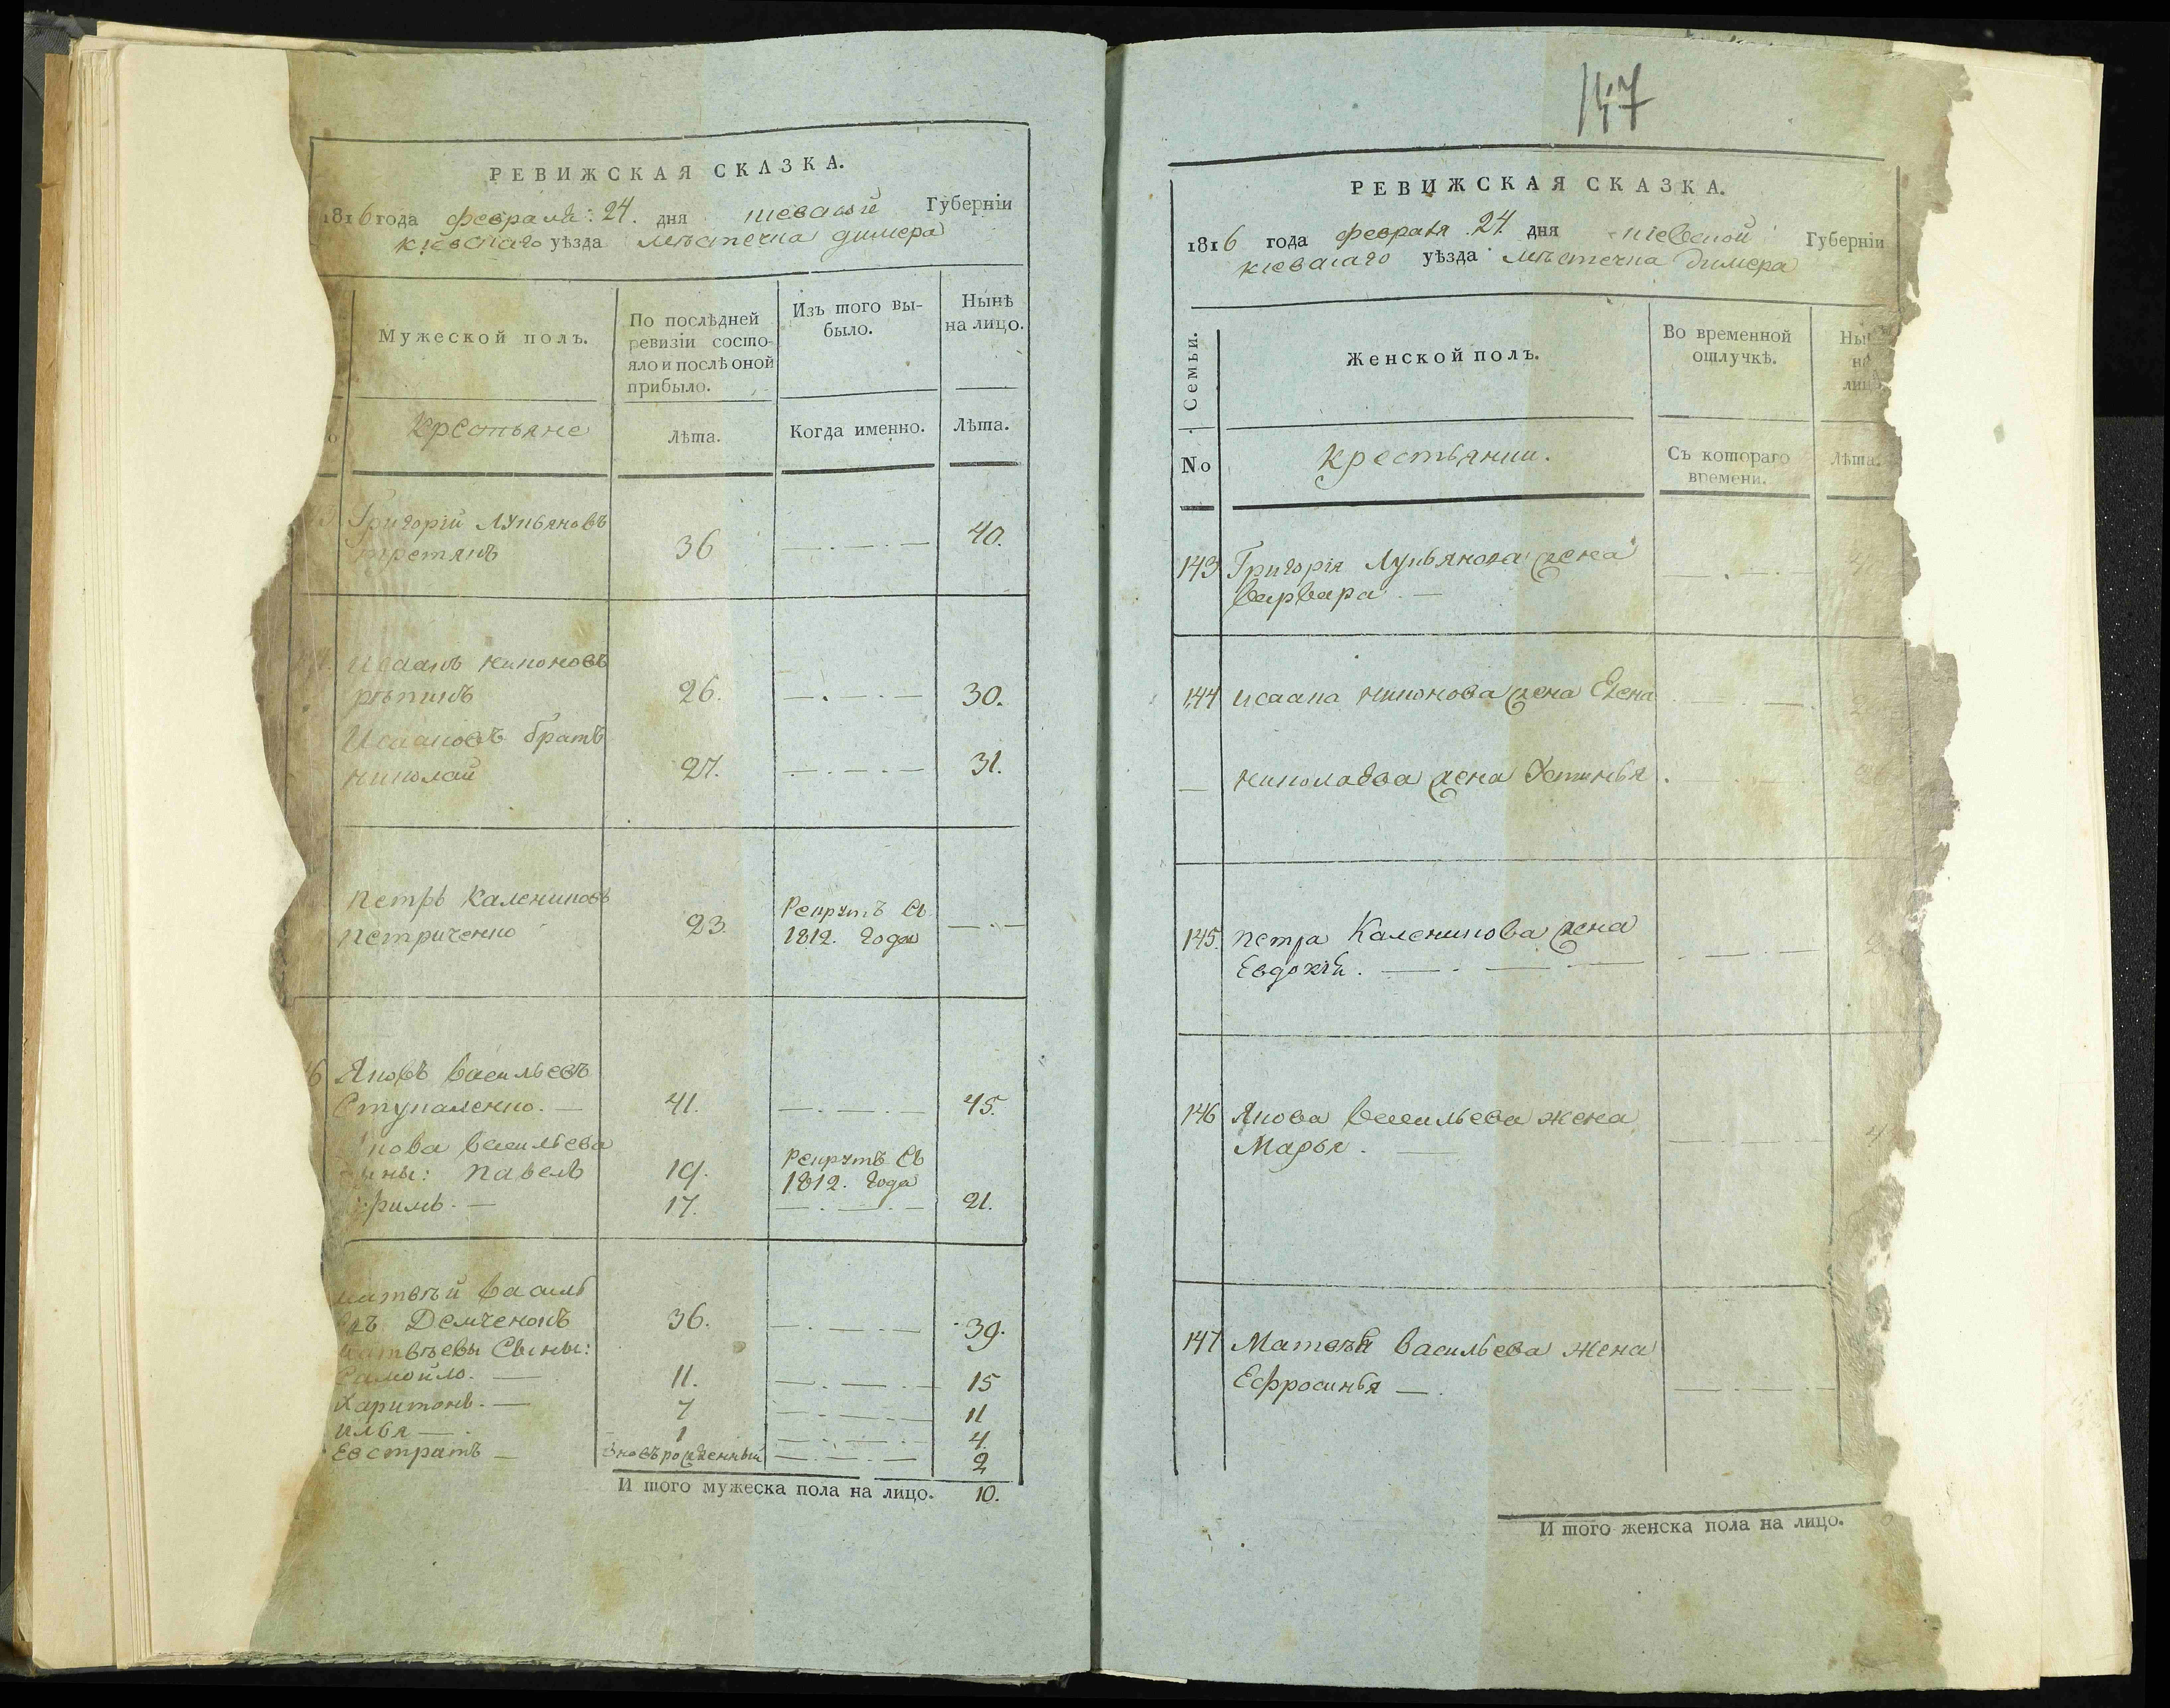 РЕВИЖСКАЯ СКАЗКА.
1816 года февраля 24. дня киевской Губерніи
кіевскаго уѣзда мѣстечка димера
Мужеской полъ.
По послѣдней
ревизіи состо-
яло и послѣ оной
прибыло.
Изъ того вы-
было.
Нынѣ
на лицо.
крестьяне
Лѣта.
Когда именно.
Лѣта.
Григорій Лукьяновъ
третякъ 36 40.
Исаакъ никоновъ
рѣпикъ 26. 30.
Исааковъ братъ
николай 27. 31.
петръ Калениковъ Рекрутъ Съ
петриченко 23. 1812. года
Яковъ васильевъ
Ступаленко. 41. 45.
кова васильева Рекрутъ Съ
сыны: павелъ 19. 1812. года
17. 21.
матвѣй василь
Демченокъ 36. 39.
матвѣевы Сыны:
Самойло. 11. 15
Харитонъ. 7 11
илья 1 4.
Евстратъ вновърожденный 2
И того мужеска пола на лицо. 10.
147
РЕВИЖСКАЯ СКАЗКА.
1816 года февраля 24. дня киевской Губерніи
кіевскаго уѣзда мѣстечка димера
Семьи.
Женской полъ.
Во временной
отлучкѣ.
Ны
на
лиц
No
крестьянки.
Съ котораго
времени.
Лѣта.
143 Григорія Лукьянова жена
варвара
144 исаака никонова жена Елена
николаева жена Устинья
145. петра Каленикова жена
Евдокія.
146 Якова васильева жена
Марья.
147 Матвѣя васильева жена
Ефросинья
И того женска пола на лицо.